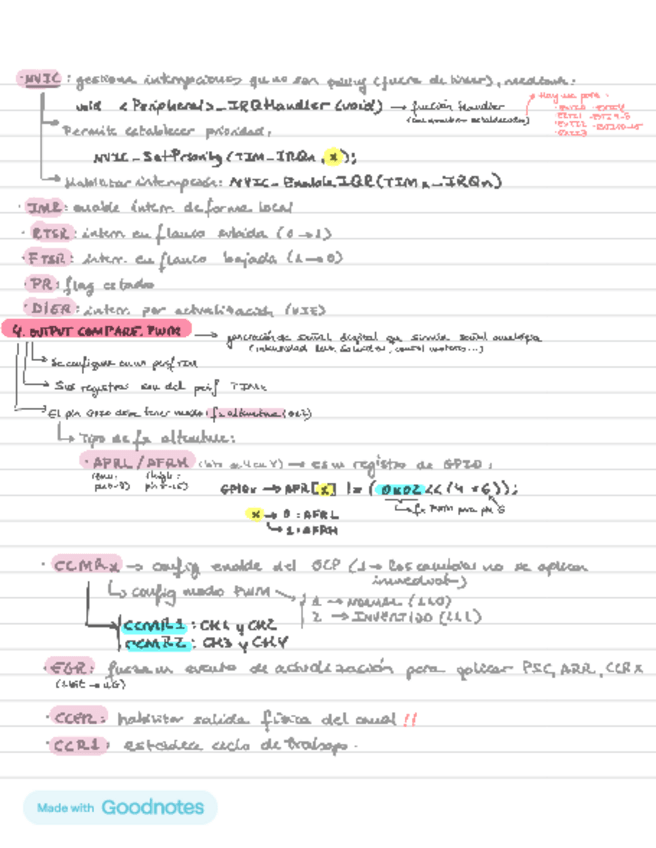 · NVIC: gestiona interrupciones que no son polling (fuera de timer), mediante:
void <Peripheral>_IRQHandler (void) → función Handler
Hay uno para:
Permite establecer prioridad:
NVIC_SetPriority (TIM_IRQn, x);
Habilitar interrupción: NVIC_EnableIQR (TIMx_IRQn)
· IMR: enable interr. de forma local
· RTSR: interr. en flanco subida (0→1)
· FTSR: interr. en flanco bajada (1→0)
· PR: flag estado
· DIER: interr. por actualización (UIE)
4. OUTPUT COMPARE. PWM → generación de señal digital que simula señal analógica
(intensidad luz, control motores...)
Se configura en un perif TIM
Sus registros son del perif TIMx
El pin GPIO debe tener modo fx alternativa (0x2)
Tipo de fx alternativa:
· AFRL / AFRH (bits de 4 en 4) → es un registro de GPIO:
GPIOx → AFR[x] |= (0x02 << (4 * 6));
fx PWM para pin 6
x → 0: AFRL
→ 1: AFRH
· CCMRx → config enable del OCP (1 → los cambios no se aplican
inmediat)
config modo PWM
1 → NORMAL (110)
2 → INVERTIDO (111)
CCMR1: CH1 y CH2
CCMR2: CH3 y CH4
· EGR: fuerza un evento de actualización para aplicar PSC, ARR, CCRx
(1bit → UG)
· CCER: habilitar salida física del canal !!
· CCR1: establece ciclo de trabajo.
Made with Goodnotes